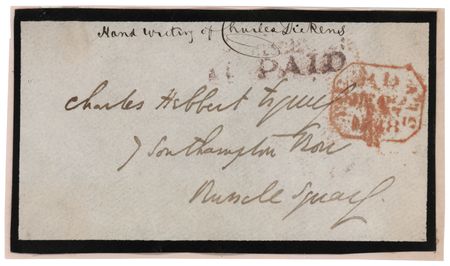 Hand writing of Charles Dickens
PAID
PAID
1848
Charles Hebbert Esquire
7 Southampton Row
Russell Square